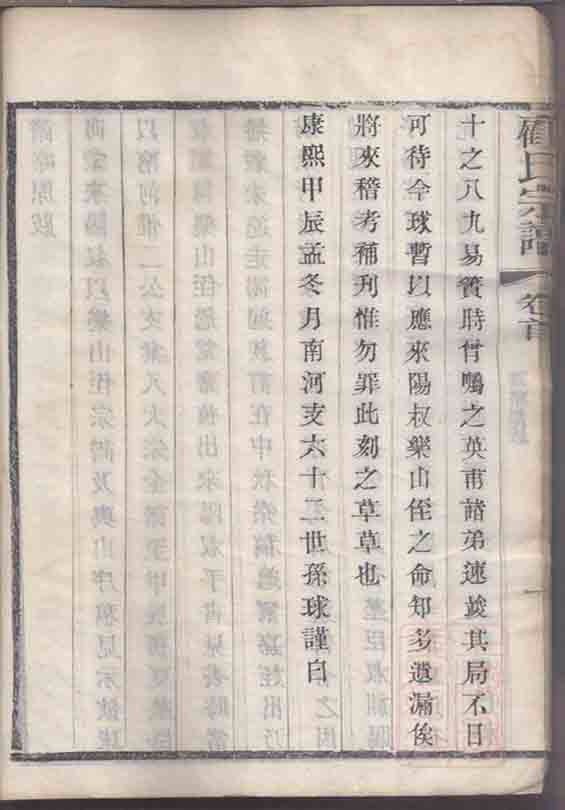 顧氏宗譜 卷首
十之八九易簀時曾囑之英甫諸弟速竣其局不日
可待今球暫以應來陽叔樂山侄之命知多遺漏俟
將來稽考補刊惟勿罪此刻之草草也
康熙甲辰孟冬月南河支六十三世孫球謹白